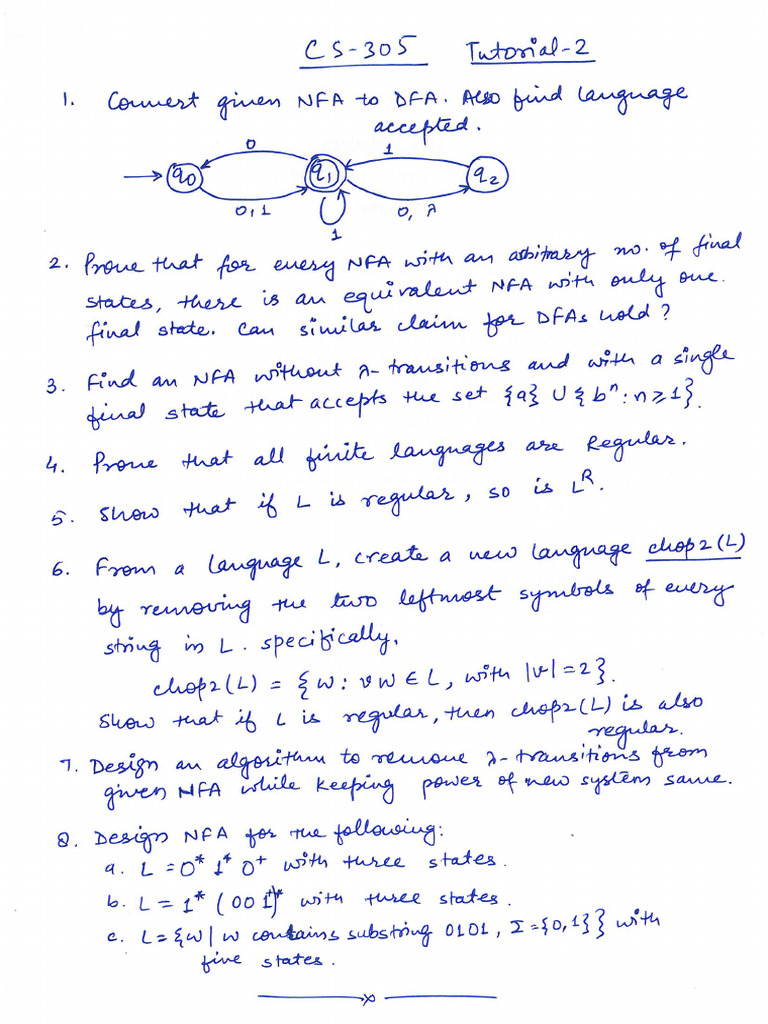 CS-305 Tutorial-2
1. Convert given NFA to DFA. Also find language
accepted.
0 1
q0 q1 q2
0,1 0, λ
1
2. Prove that for every NFA with an arbitrary no. of final
states, there is an equivalent NFA with only one
final state. Can similar claim for DFAs hold?
3. Find an NFA without λ-transitions and with a single
final state that accepts the set {a} ∪ {bⁿ: n ≥ 1}.
4. Prove that all finite languages are Regular.
5. Show that if L is regular, so is Lᴿ.
6. From a language L, create a new language chop2(L)
by removing the two leftmost symbols of every
string in L. specifically,
chop2(L) = {w: vw ∈ L, with |v| = 2}.
Show that if L is regular, then chop2(L) is also
regular.
7. Design an algorithm to remove λ-transitions from
given NFA while keeping power of new system same.
8. Design NFA for the following:
a. L = 0* 1* 0⁺ with three states.
b. L = 1* (001⁺)* with three states.
c. L = {w | w contains substring 0101, Σ = {0,1}} with
five states.
x